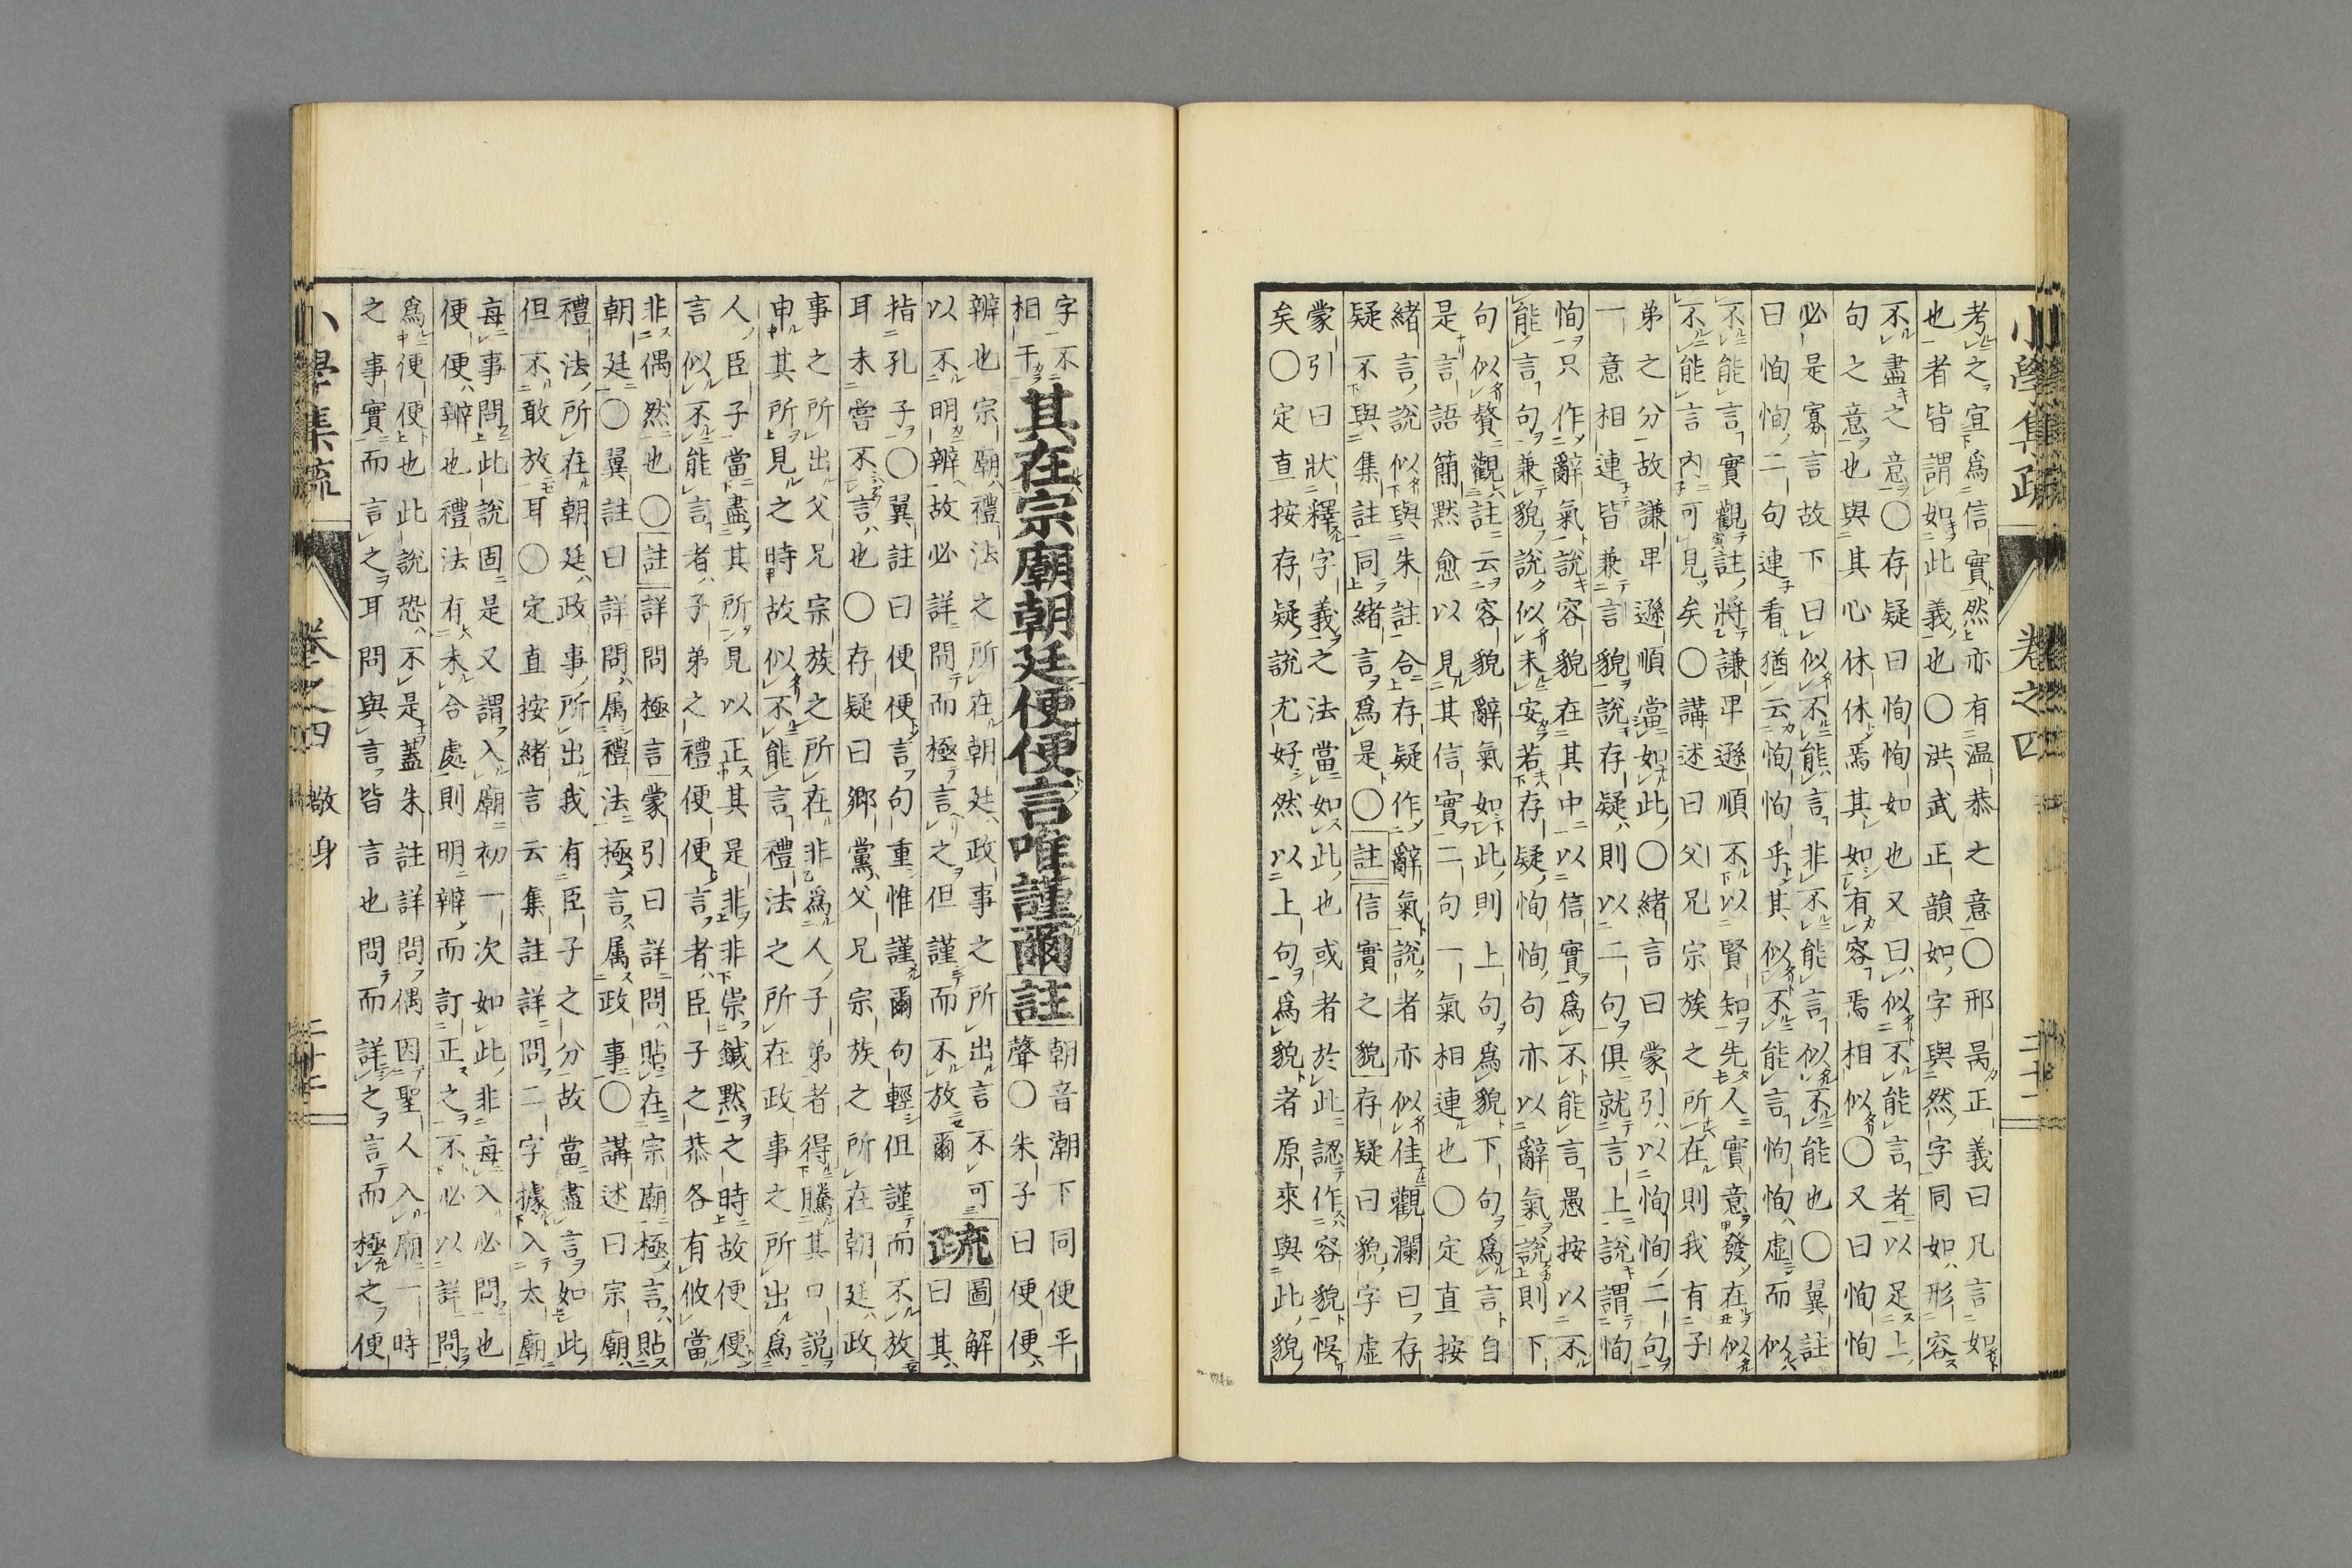 小學集疏 卷之四
考之宜爲信實然亦有温恭之意〇邢昺正義曰凡言如
也者皆謂如此義也〇洪武正韻如字與然字同如形容
不盡之意〇存疑曰恂恂如也又曰似不能言者以足上
句之意也與其心休休焉其如有容焉相似〇又曰恂恂
必是寡言故下曰似不能言非不能言似不能也〇翼註
曰恂恂二句連看猶云恂恂乎其似不能言恂恂虛而似
不能言實觀註將謙卑遜順不以賢知先人實意發在似
不能言內可見矣〇講述曰父兄宗族之所在則我有子
弟之分故謙卑遜順當如此〇緒言曰蒙引以恂恂二句
一意相連皆兼言貌說存疑則以二句俱就言上說謂恂
恂只作辭氣說容貌在其中以信實爲不能言愚按以不
能言句兼貌說似未安若存疑恂恂句亦以辭氣說則下
句似贅觀註云容貌辭氣如此則上句爲貌下句爲言自
是言語簡默愈以見其信實二句一氣相連也〇定直按
緒言說似與朱註合存疑作辭氣說者亦似佳觀瀾曰存
疑不與集註同緒言爲是〇註信實之貌存疑曰貌字虛
蒙引曰狀釋字義之法當如此也或者於此認作容貌悞
矣〇定直按存疑說尤好然以上句爲貌者原來與此貌
字不
相干
其在宗廟朝廷便便言唯謹爾註
朝音潮下同便平
聲〇朱子曰便便
辨也宗廟禮法之所在朝廷政事之所出言不可
以不明辨故必詳問而極言之但謹而不放爾
疏
圖解
曰其
指孔子〇翼註曰便便言句重惟謹爾句輕但謹而不放
耳未嘗不言也〇存疑曰鄉黨父兄宗族之所在朝廷政
事之所出父兄宗族之所在非爲人子弟者得騰其口說
申其所見之時故似不能言禮法之所在政事之所出爲
人臣子當盡其所見以正其是非非崇鍼默之時故便便
言似不能言者子弟之禮便便言者臣子之恭各有攸當
非偶然也〇註詳問極言蒙引曰詳問貼在宗廟極言貼
朝廷〇翼註曰詳問属禮法極言属政事〇講述曰宗廟
禮法所在朝廷政事所出我有臣子之分故當盡言如此
但不敢放耳〇定直按緒言云集註詳問二字據入太廟
每事問此說固是又謂入廟初一次如此非每入必問也
便便辨也禮法有未合處則明辨而訂正之不必以詳問
爲便便也此說恐不是蓋朱註詳問偶因聖人入廟一時
之事實而言之耳問與言皆言也問而詳之言而極之便
小學集疏 卷之四 敬身